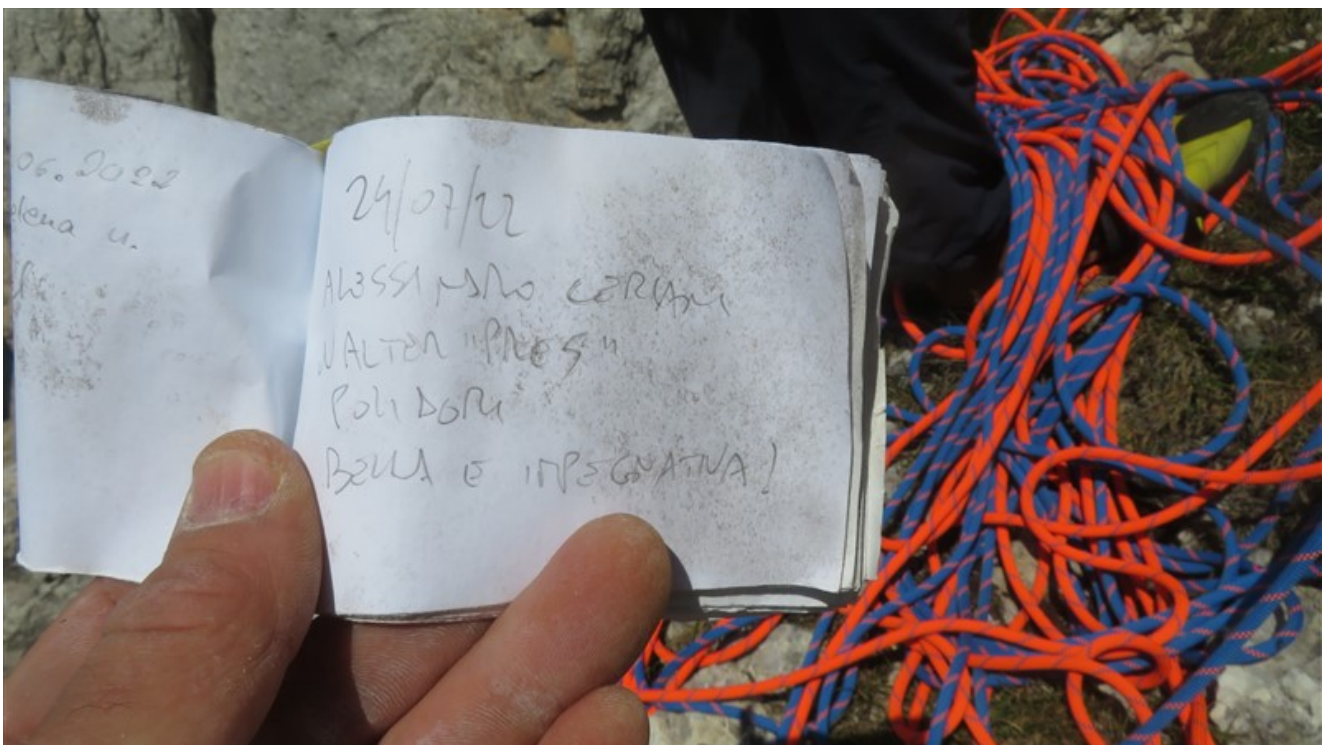 06.2022
elena u.
24/07/22
ALESSANDRO CERIANI
WALTER "PRES"
POLIDORI
BELLA E IMPEGNATIVA!